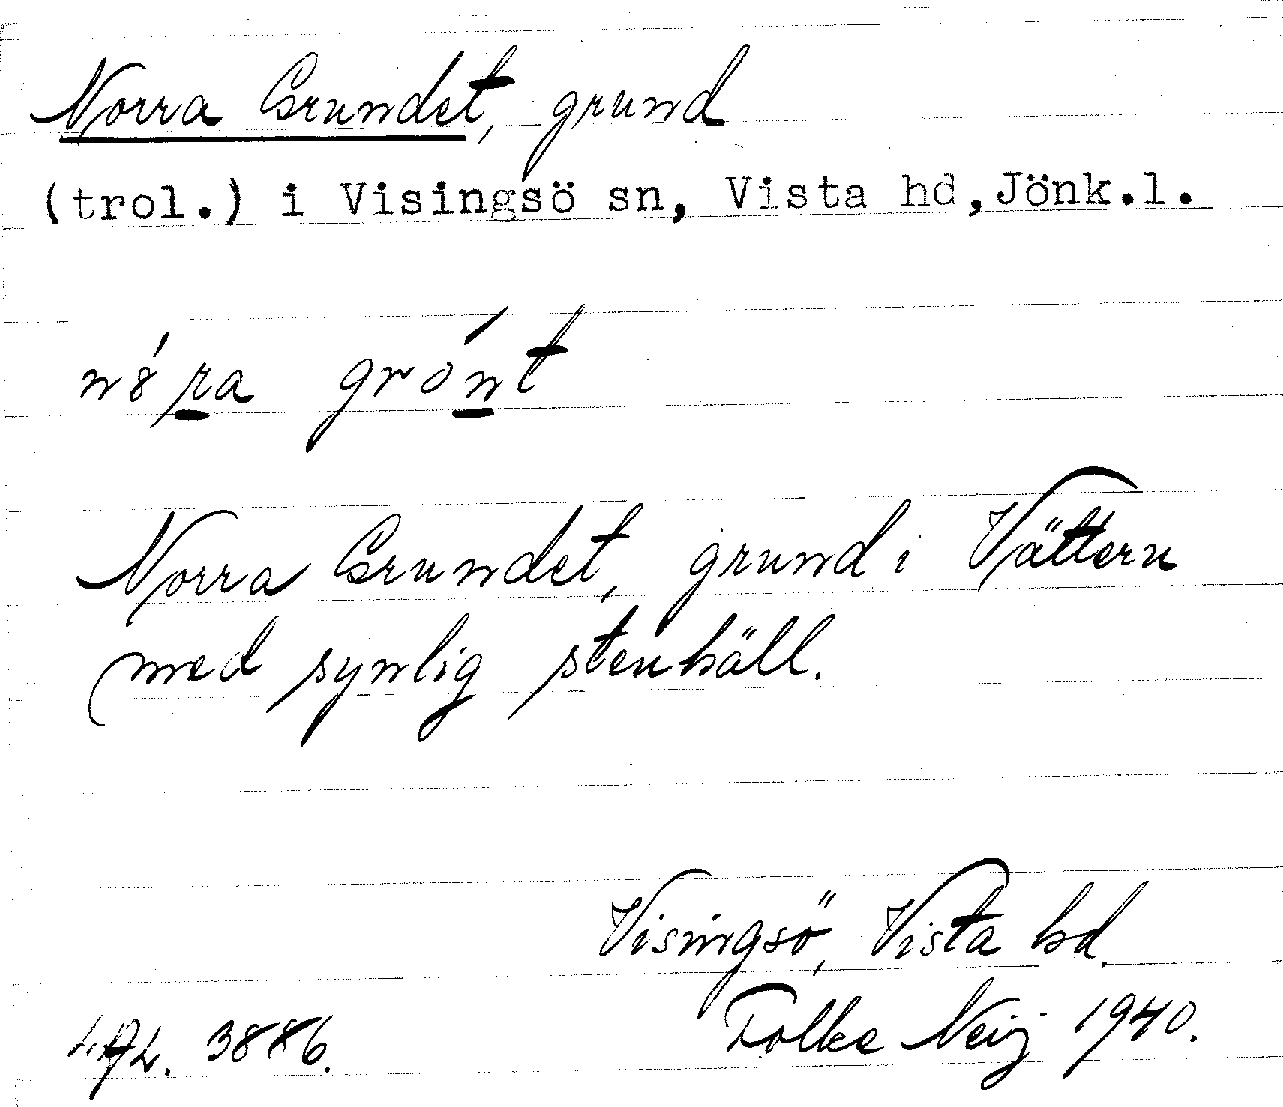 Norra Grundet, grund
(trol.) i Visingsö sn, Vista hd, Jönk.l.
nȣ́ra grónt
Norra Grundet, grund i Vättern
med synlig stenhäll.
Visingsö, Vista hd.
Folke Neij 1940.
3886.